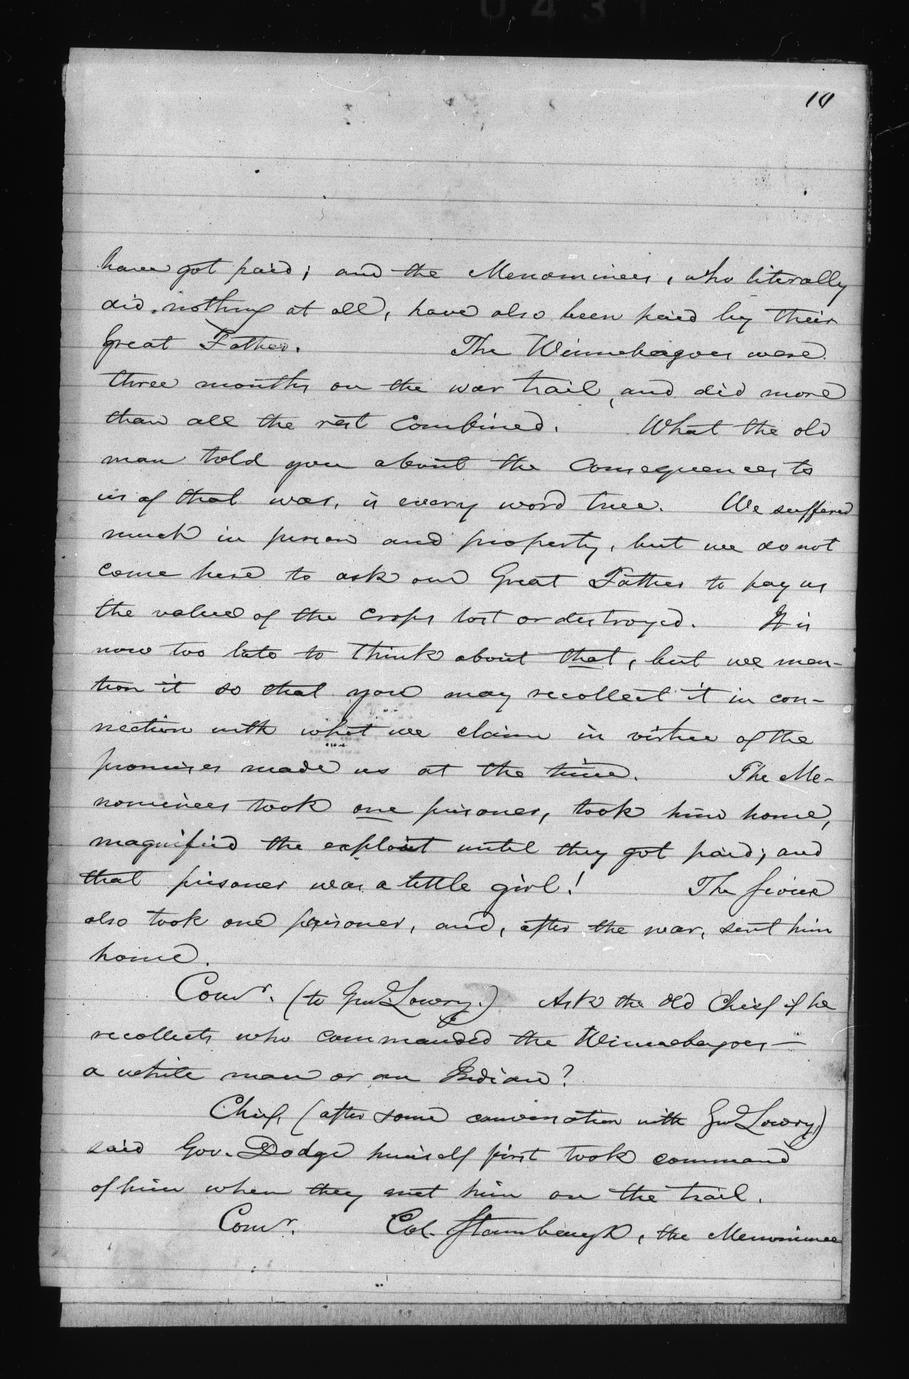 10
have got paid; and the Menominees, who literally
did nothing at all, have also been paid by their
Great Father. The Winnebagoes were
three months on the war trail, and did more
than all the rest combined. What the old
man told you about the consequences to
us of that war, is every word true. We suffered
much in person and property, but we do not
come here to ask our Great Father to pay us
the value of the crops lost or destroyed. It is
now too late to think about that, but we men-
tion it so that you may recollect it in con-
nection with what we claim in virtue of the
promises made us at the time. The Me-
nominees took one prisoner, took him home,
magnified the exploit until they got paid; and
that prisoner was a little girl! The Sioux
also took one prisoner, and, after the war, sent him
home.
Comr. (to Genl Lowry.) Ask the old Chief if he
recollects who commanded the Winnebagoes—
a white man or an Indian?
Chief, (after some conversation with Genl Lowry)
said Gov. Dodge himself first took command
of him when they met him on the trail.
Comr. Col. Stambaugh, the Menominee